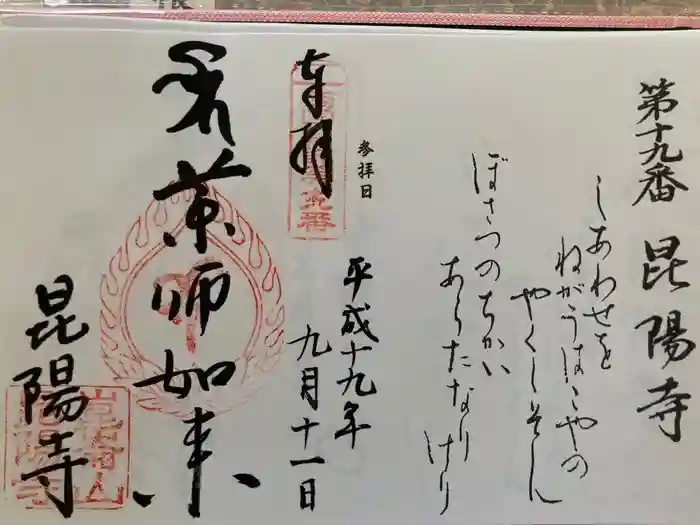 第十九番 昆陽寺
しあわせを
ねがうはこやの
やくしそん
ぼさつのちかい
あらたなり
けり
参拝日
平成十九年
九月十一日
奉拝
薬師如来
昆陽寺